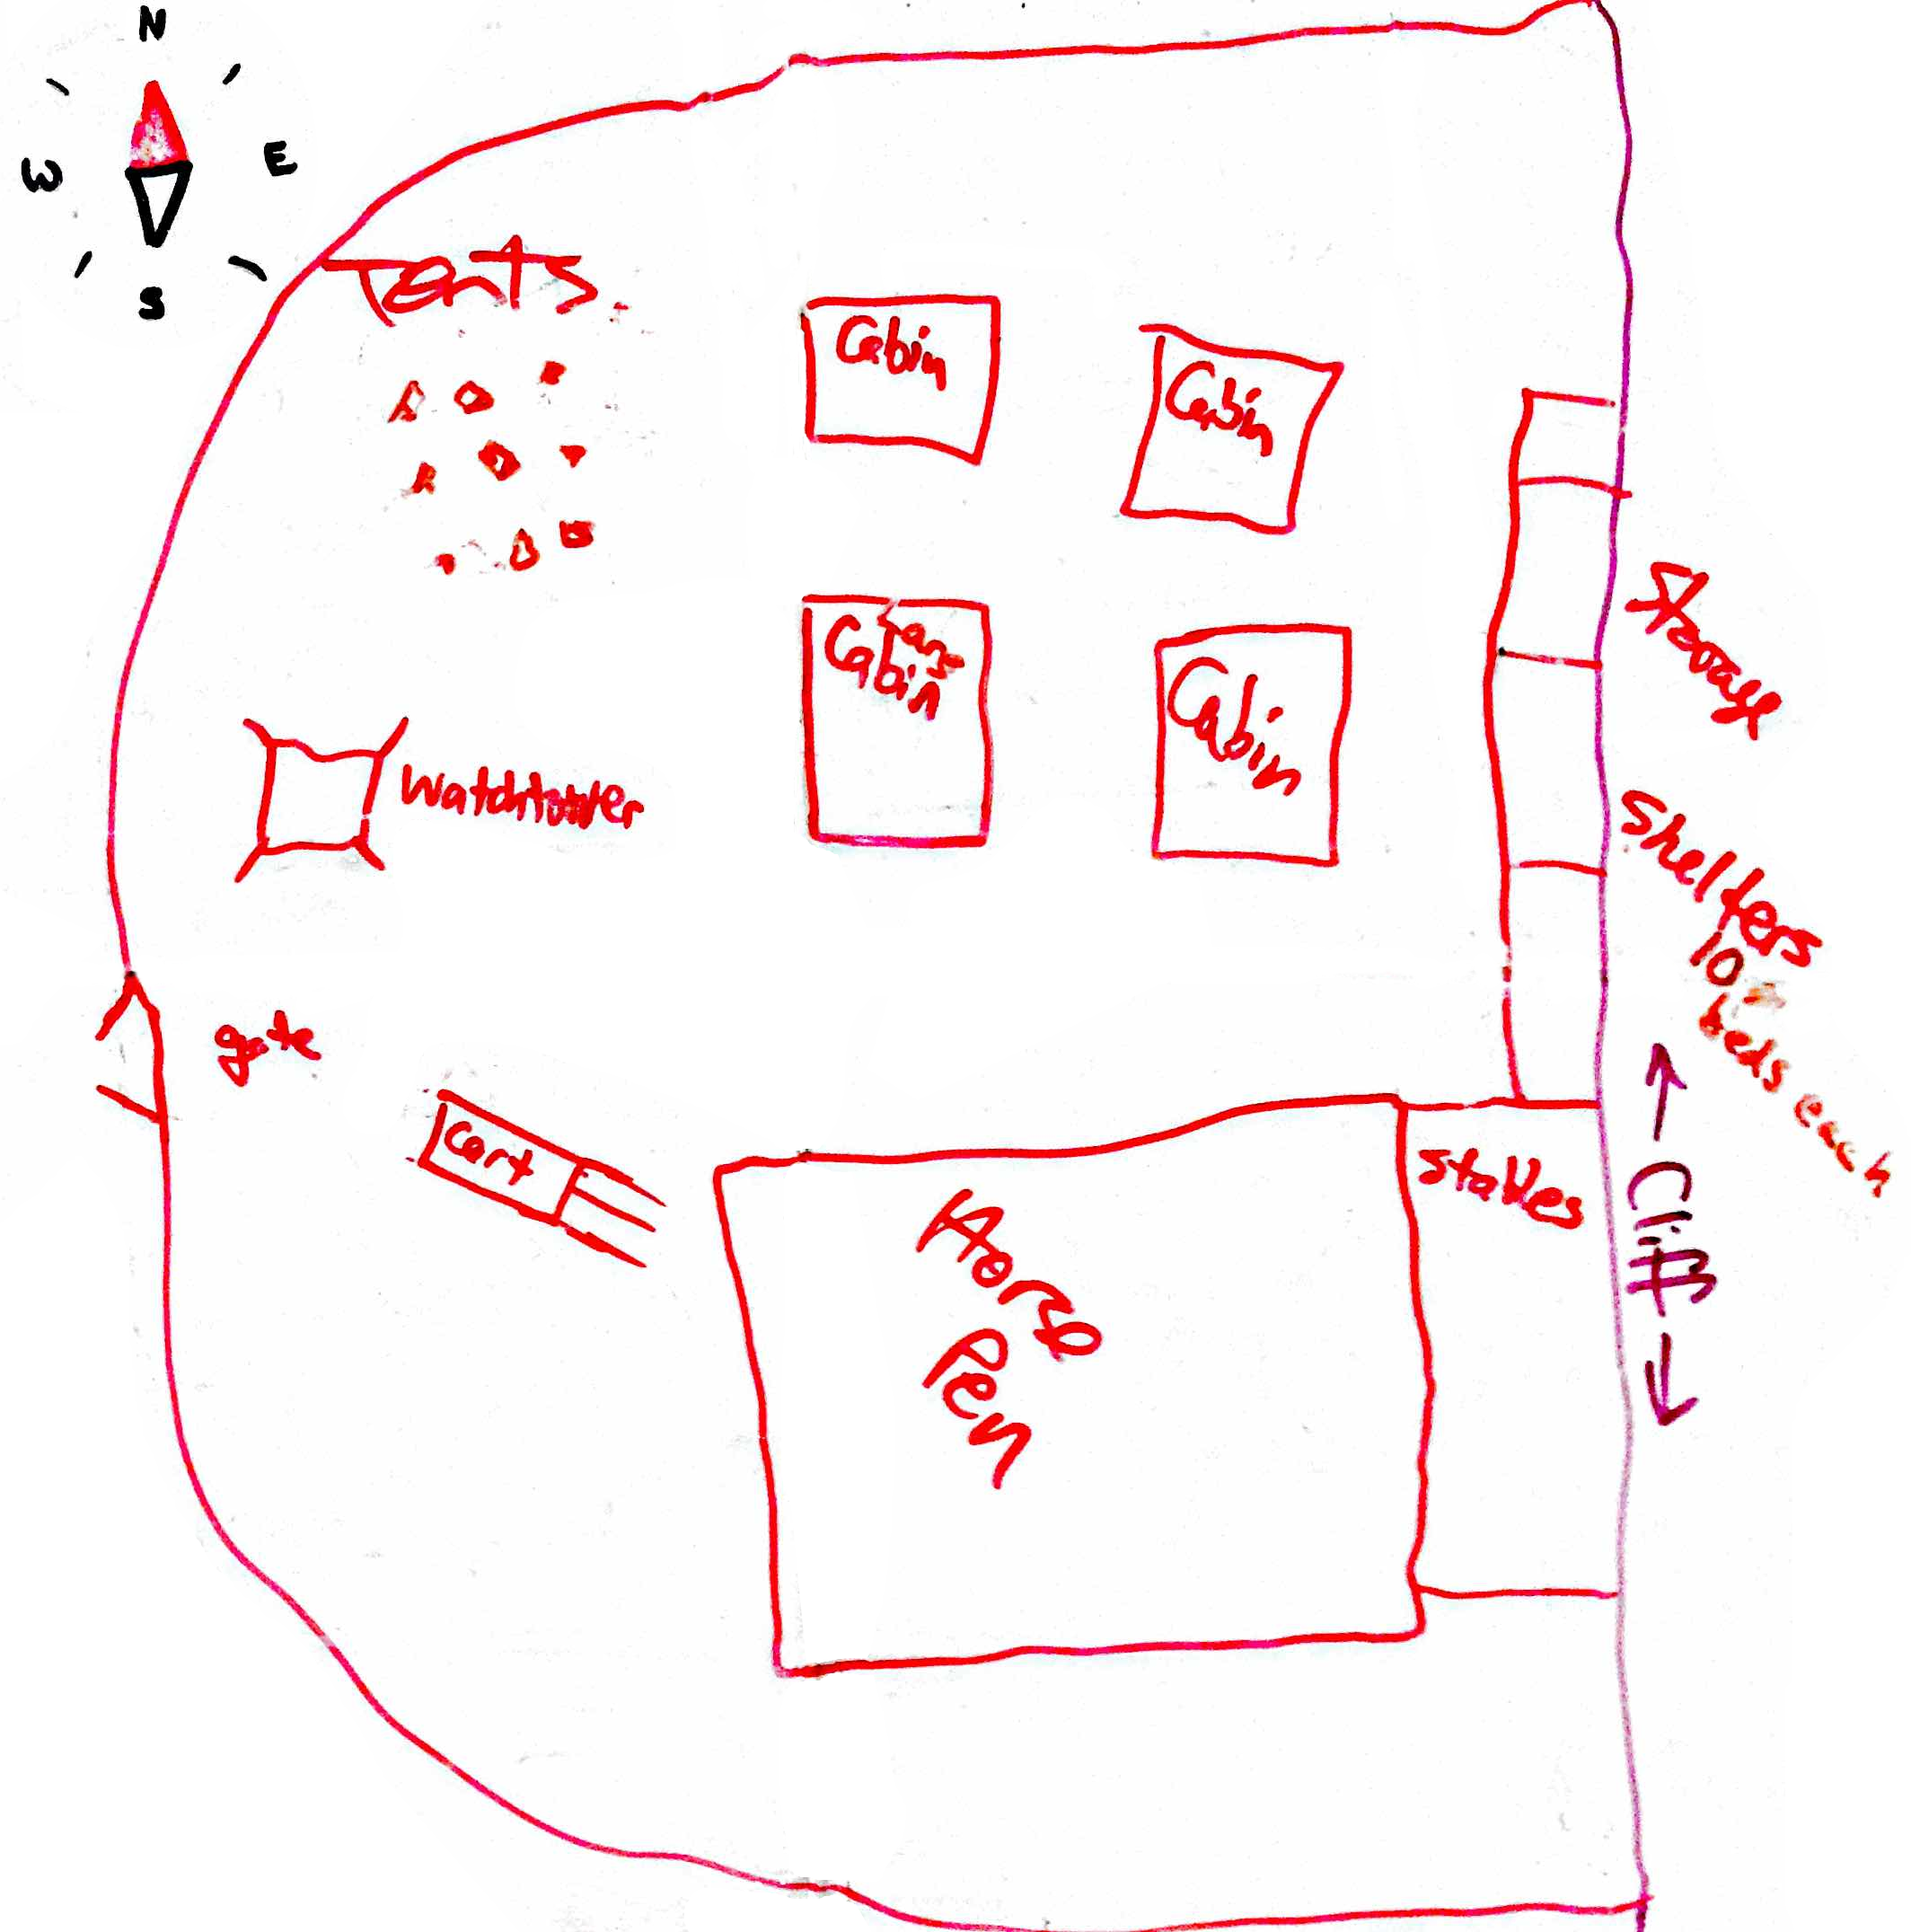 N
W
E
S
Tents.
Cabin
Cabin
Cabin
Cabin
Storage
Watchtower
Shelters
10
beds each
gate
Cart
Stables
Horse
Pen
Cliff